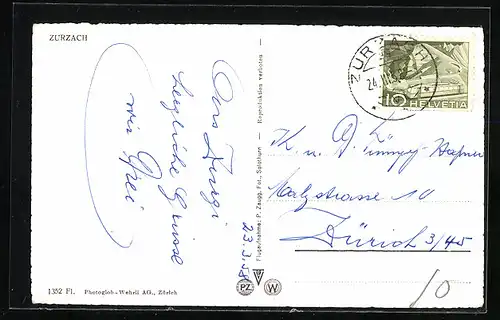 ZURZACH
Aus Zurzi
herzliche Grüsse
wir Drei
23.3.58
1352 Fl. Photoglob-Wehrli AG., Zürich
Flugaufnahme: P. Zaugg, Fot., Solothurn - Reproduktion verboten
PZ W
ZURZACH
24.III.
10 HELVETIA
K. u.
Malzstrasse 10
Zürich 3/45
10